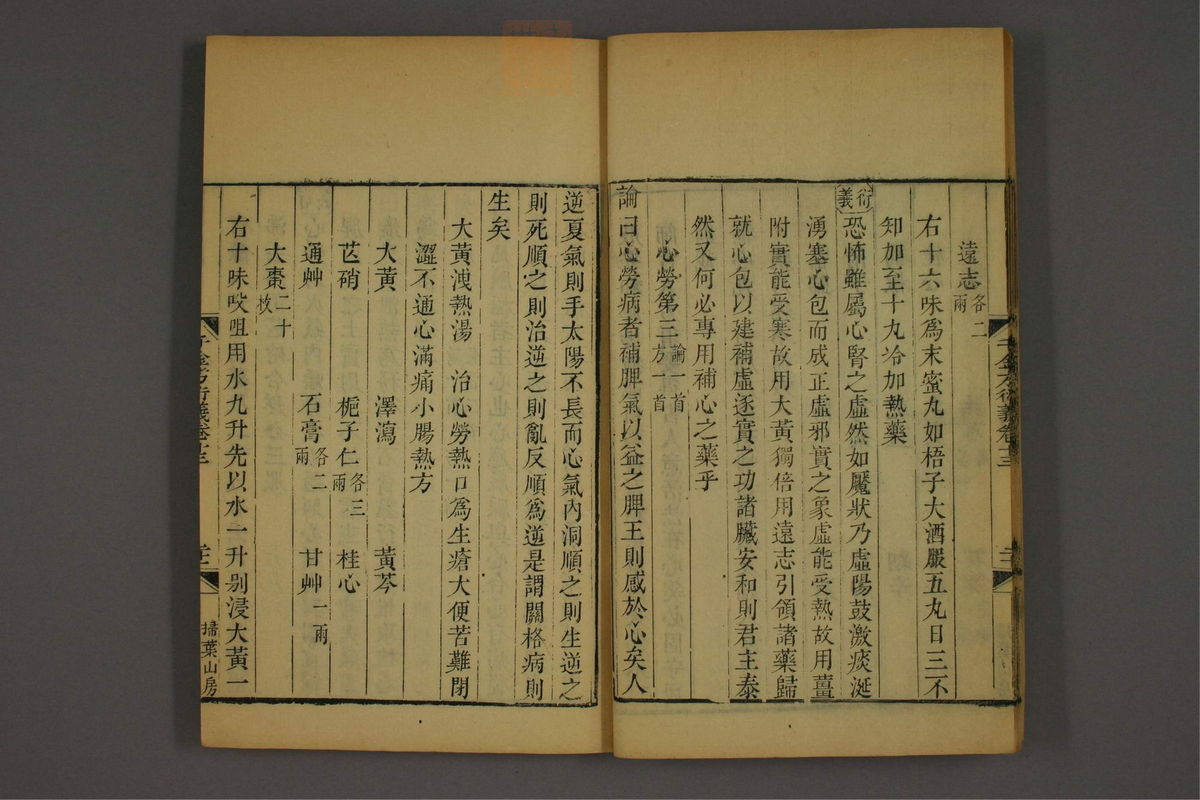 遠志各二兩
右十六味爲末蜜丸如梧子大酒嚴五丸日三不
知加至十九冾加熱藥
衍義恐怖雖屬心腎之虛然如魘狀乃虛陽鼓激痰涎
湧塞心包而成正虛邪實之象虛能受熱故用薑
附實能受寒故用大黃獨倍用遠志引領諸藥歸
就心包以建補虛逐實之功諸臟安和則君主泰
然又何必專用補心之藥乎
心勞第三論一首方一首
論曰心勞病者補脾氣以益之脾王則感於心矣人
逆夏氣則手太陽不長而心氣內洞順之則生逆之
則死順之則治逆之則亂反順爲逆是謂關格病則
生矣
大黃洩熱湯 治心勞熱口爲生瘡大便苦難閉
澀不通心滿痛小腸熱方
大黃 澤瀉 黃芩
芒硝 梔子仁各三兩 桂心
通艸 石膏各二兩 甘艸一兩
大棗二十枚
右十味㕮咀用水九升先以水一升别浸大黃一
千金方衍義卷十三
掃葉山房